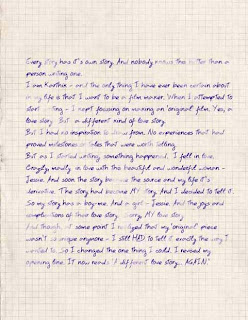 Every story has it's own story. And nobody knows this better than a
person writing one.
I am Karthik - and the only thing I have ever been certain about
in my life is that I want to be a film maker. When I attempted to
start writing - I kept focusing on making an 'original' film. Yes, a
love story. But a different kind of love story.
But I had no inspiration to draw from. No experiences that had
proved milestones or tales that were worth telling.
But as I started writing, something happened. I fell in love.
Crazily, madly, in love with this beautiful and wonderful woman -
Jessie. And soon the story became the source and my life it's
derivative. The story had become MY story. And I decided to tell it.
So my story has a boy-me. And a girl - Jessie. And the joys and
complications of their love story. Sorry, MY love story.
And though at some point I realized that my 'original' piece
wasn't so unique anymore - I still HAD to tell it exactly the way I
wanted to. So I changed the one thing I could. I revised my
opening line. IT now reads "A different love story... AGAIN."